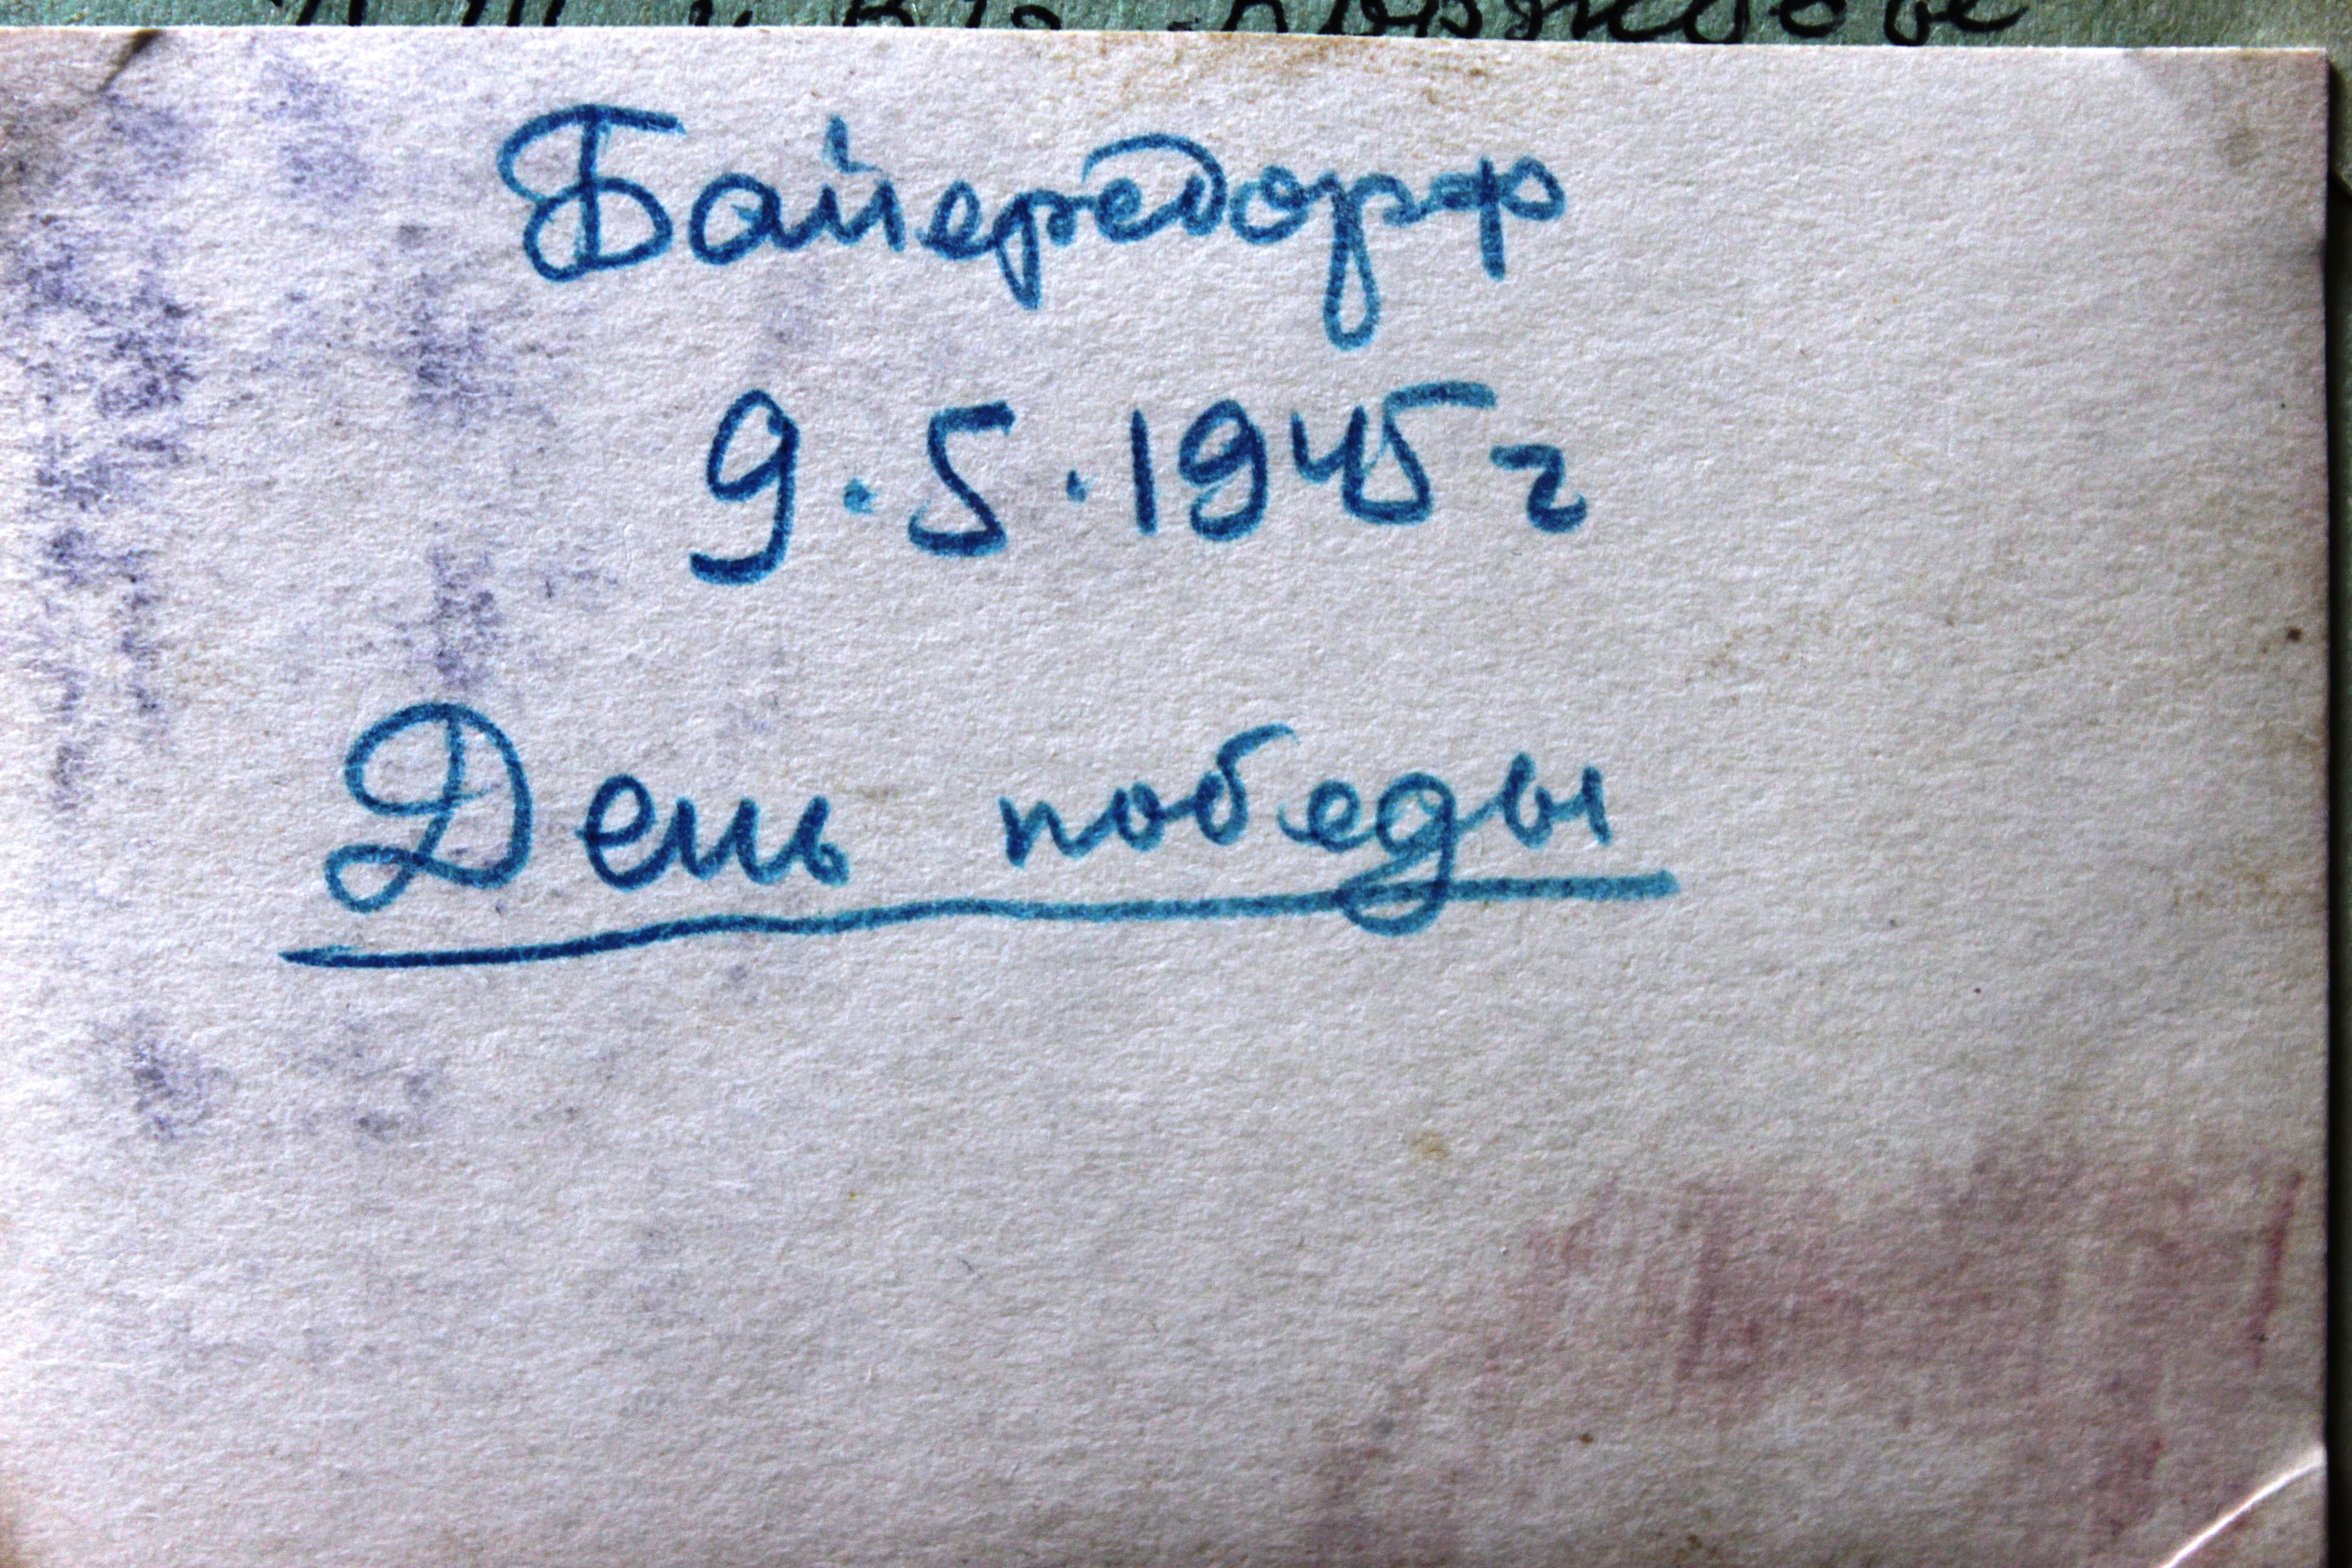 Байерсдорф
9.5.1945г
День победы